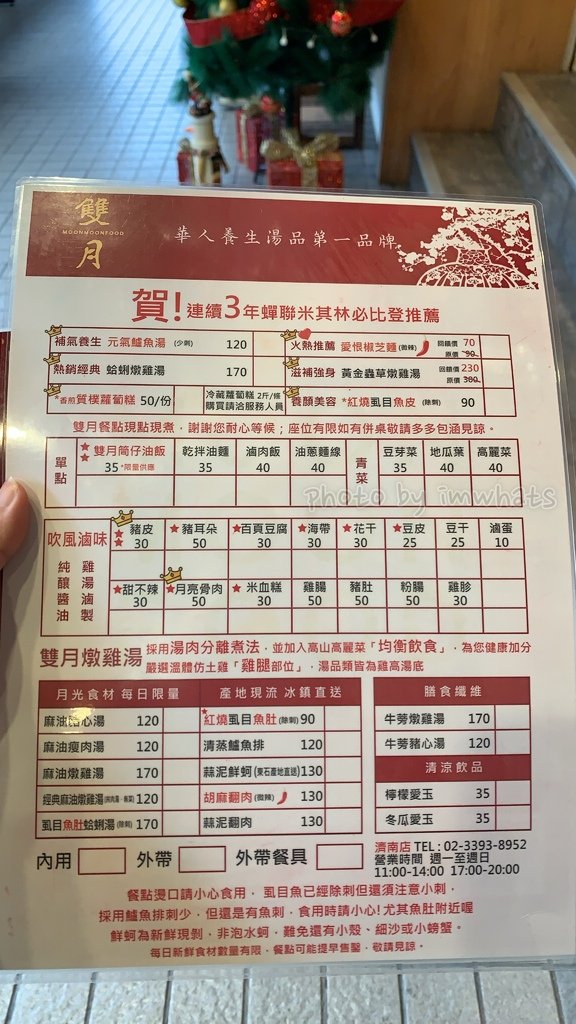 雙月
MOONMOONFOOD
華人養生湯品第一品牌
賀!連續3年蟬聯米其林必比登推薦
補氣養生 元氣鱸魚湯 (少刺) 120
火熱推薦 愛恨椒芝麵 (微辣) 回饋價 70 原價 90
熱銷經典 蛤蜊燉雞湯 170
滋補強身 黃金蟲草燉雞湯 回饋價 230 原價 300
*香煎 質樸蘿蔔糕 50/份 冷藏蘿蔔糕 2斤/條 購買請洽服務人員
養顏美容 *紅燒虱目魚皮 (除刺) 90
雙月餐點現點現煮，謝謝您耐心等候；座位有限如有併桌敬請多多包涵見諒。
單點
★★雙月筒仔油飯 35 *限量供應
乾拌油麵 35
滷肉飯 40
油蔥麵線 40
青菜
豆芽菜 35
地瓜葉 40
高麗菜 40
Photo by imwhats
吹風滷味
純雞釀湯醬滷油製
★★★豬皮 30
★豬耳朵 50
★百頁豆腐 30
★海帶 30
★花干 30
★豆皮 25
豆干 25
滷蛋 10
★甜不辣 30
★月亮骨肉 50
★米血糕 30
雞腸 50
豬肚 50
粉腸 50
雞胗 30
雙月燉雞湯 採用湯肉分離煮法，並加入高山高麗菜「均衡飲食」，為您健康加分
嚴選溫體仿土雞「雞腿部位」，湯品類皆為雞高湯底
月光食材 每日限量
麻油豬心湯 120
麻油瘦肉湯 120
麻油燉雞湯 170
經典麻油燉雞湯 120
虱目魚肚蛤蜊湯 (除刺) 170
產地現流 冰鎮直送
★紅燒虱目魚肚 (除刺) 90
清蒸鱸魚排 120
蒜泥鮮蚵 (東石產地直送) 130
胡麻翻肉 (微辣) 130
蒜泥翻肉 130
膳食纖維
牛蒡燉雞湯 170
牛蒡豬心湯 120
清涼飲品
檸檬愛玉 35
冬瓜愛玉 35
內用 外帶 外帶餐具
濟南店 TEL : 02-3393-8952
營業時間 週一至週日
11:00-14:00 17:00-20:00
餐點燙口請小心食用， 虱目魚已經除刺但還須注意小刺，
採用鱸魚排刺少，但還是有魚刺，食用時請小心! 尤其魚肚附近喔
鮮蚵為新鮮現剝，非泡水蚵，難免還有小殼、細沙或小螃蟹。
每日新鮮食材數量有限，餐點可能提早售罄，敬請見諒。